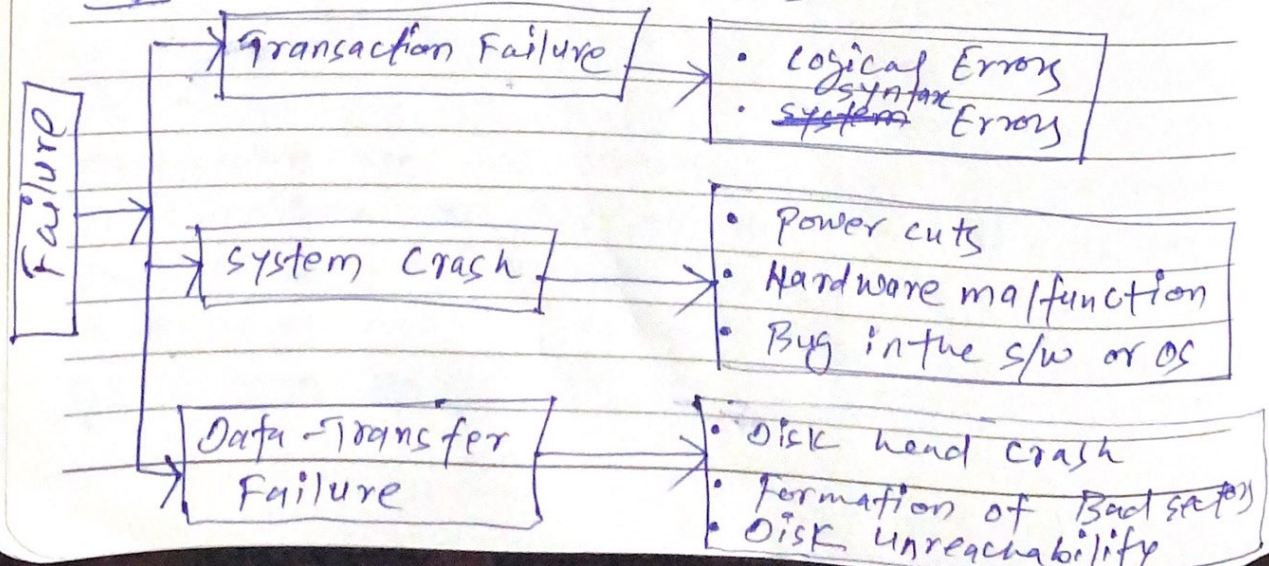 Failure
Transaction Failure
• Logical Errors
syntax
• system Errors
System Crash
• Power cuts
• Hardware malfunction
• Bug in the s/w or OS
Data-Transfer
Failure
• Disk head crash
• Formation of Bad sectors
• Disk unreachability